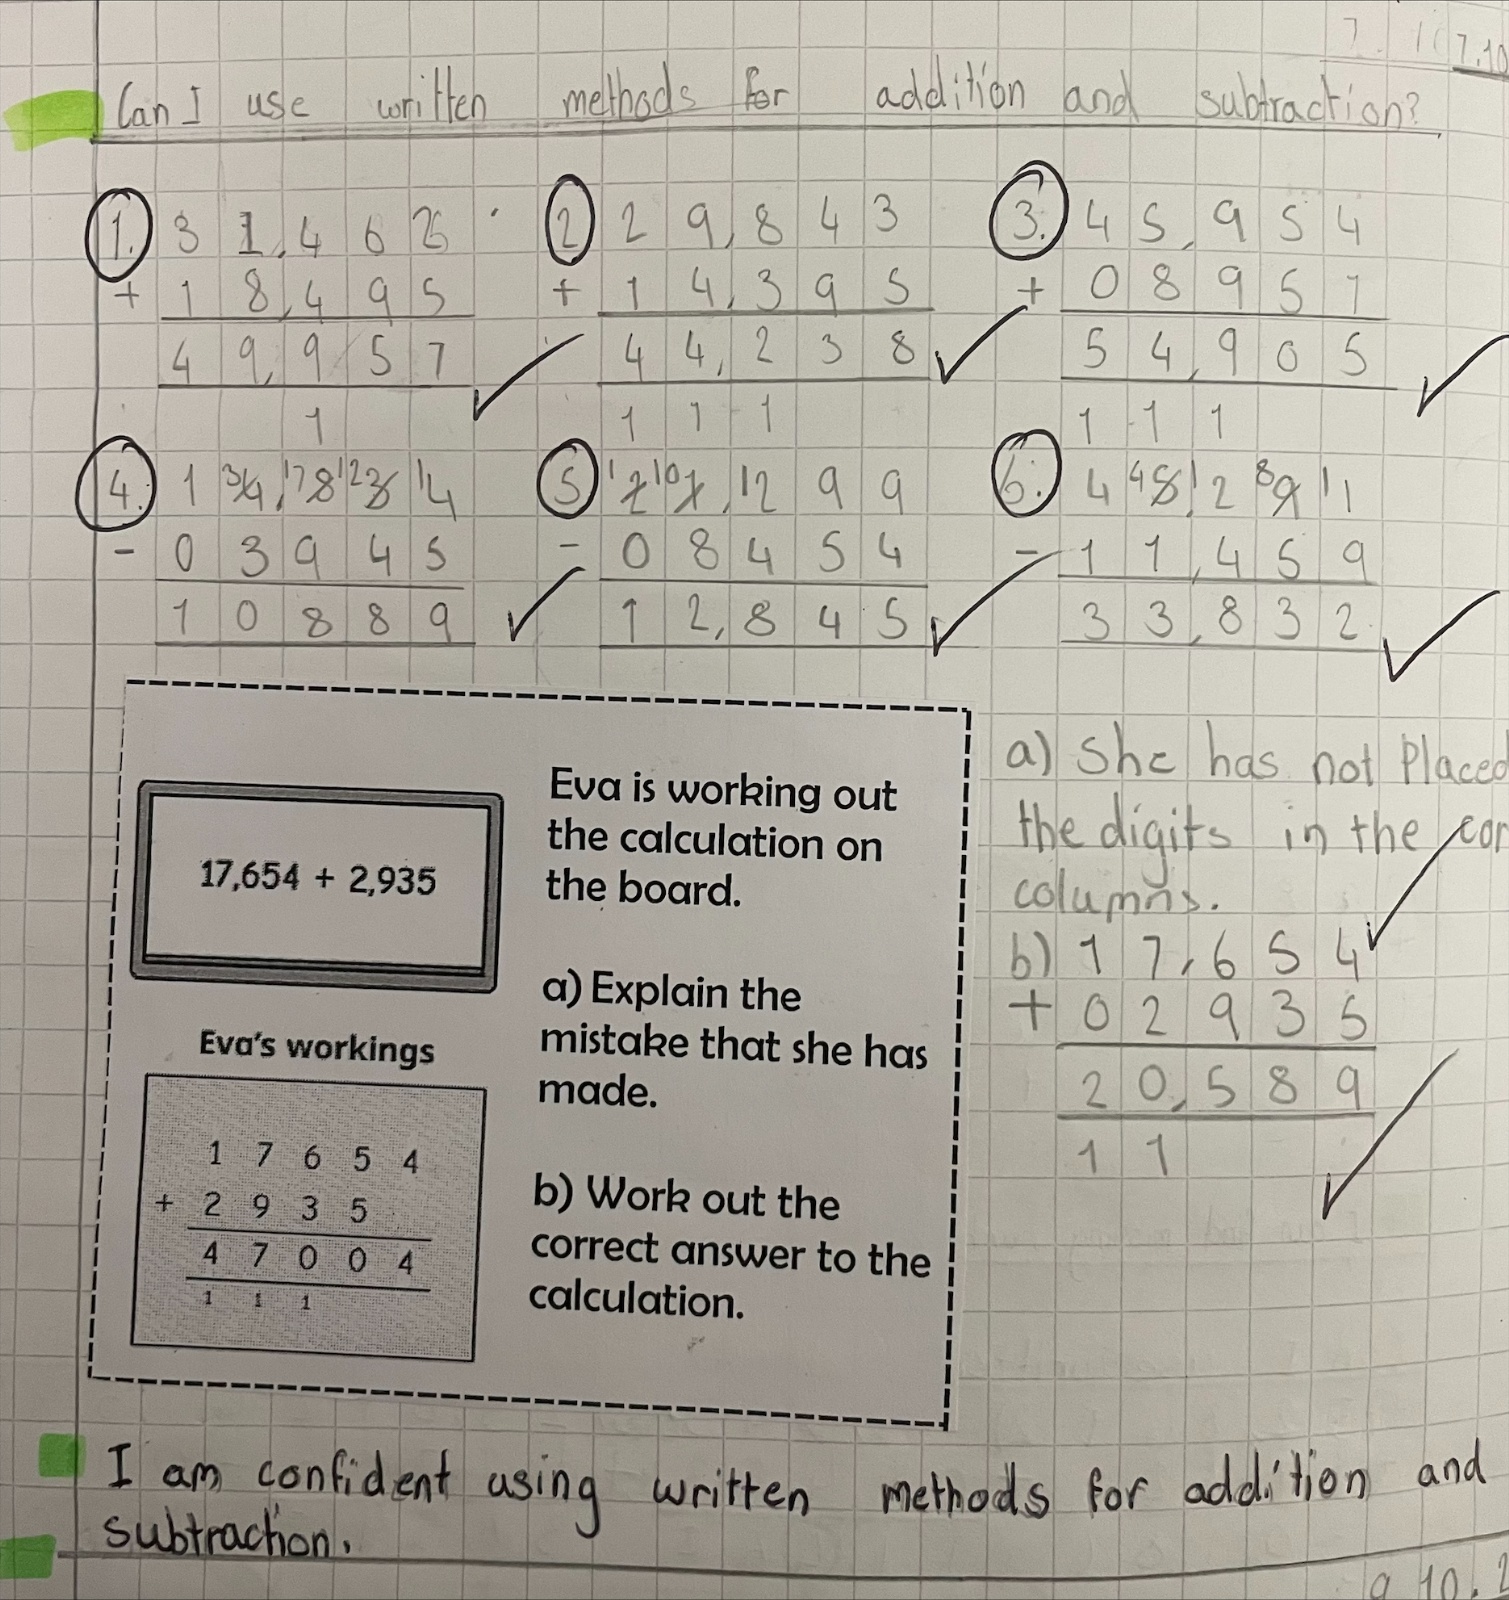 7.10
Can I use written methods for addition and subtraction?
1. 3 1,4 6 2
+ 1 8,4 9 5
4 9,9 5 7
1
2 2 9,8 4 3
+ 1 4,3 9 5
4 4,2 3 8
1 1 1
3. 4 5,9 5 4
+ 0 8 9 5 1
5 4,9 0 5
1 1 1
4. 1 3 4,17 8 12 3 14
- 0 3 9 4 5
1 0 8 8 9
5 1 2 10 1,12 9 9
- 0 8 4 5 4
1 2,8 4 5
6. 4 4 5,12 8 9 11
- 1 1,4 5 9
3 3,8 3 2
17,654 + 2,935
Eva's workings
1 7 6 5 4
+ 2 9 3 5
4 7 0 0 4
1 1 1
Eva is working out
the calculation on
the board.
a) Explain the
mistake that she has
made.
b) Work out the
correct answer to the
calculation.
a) She has not Placed
the digits in the cor
columns.
b) 1 7,6 5 4
+ 0 2 9 3 5
2 0,5 8 9
1 1
I am confident using written methods for addition and
subtraction.